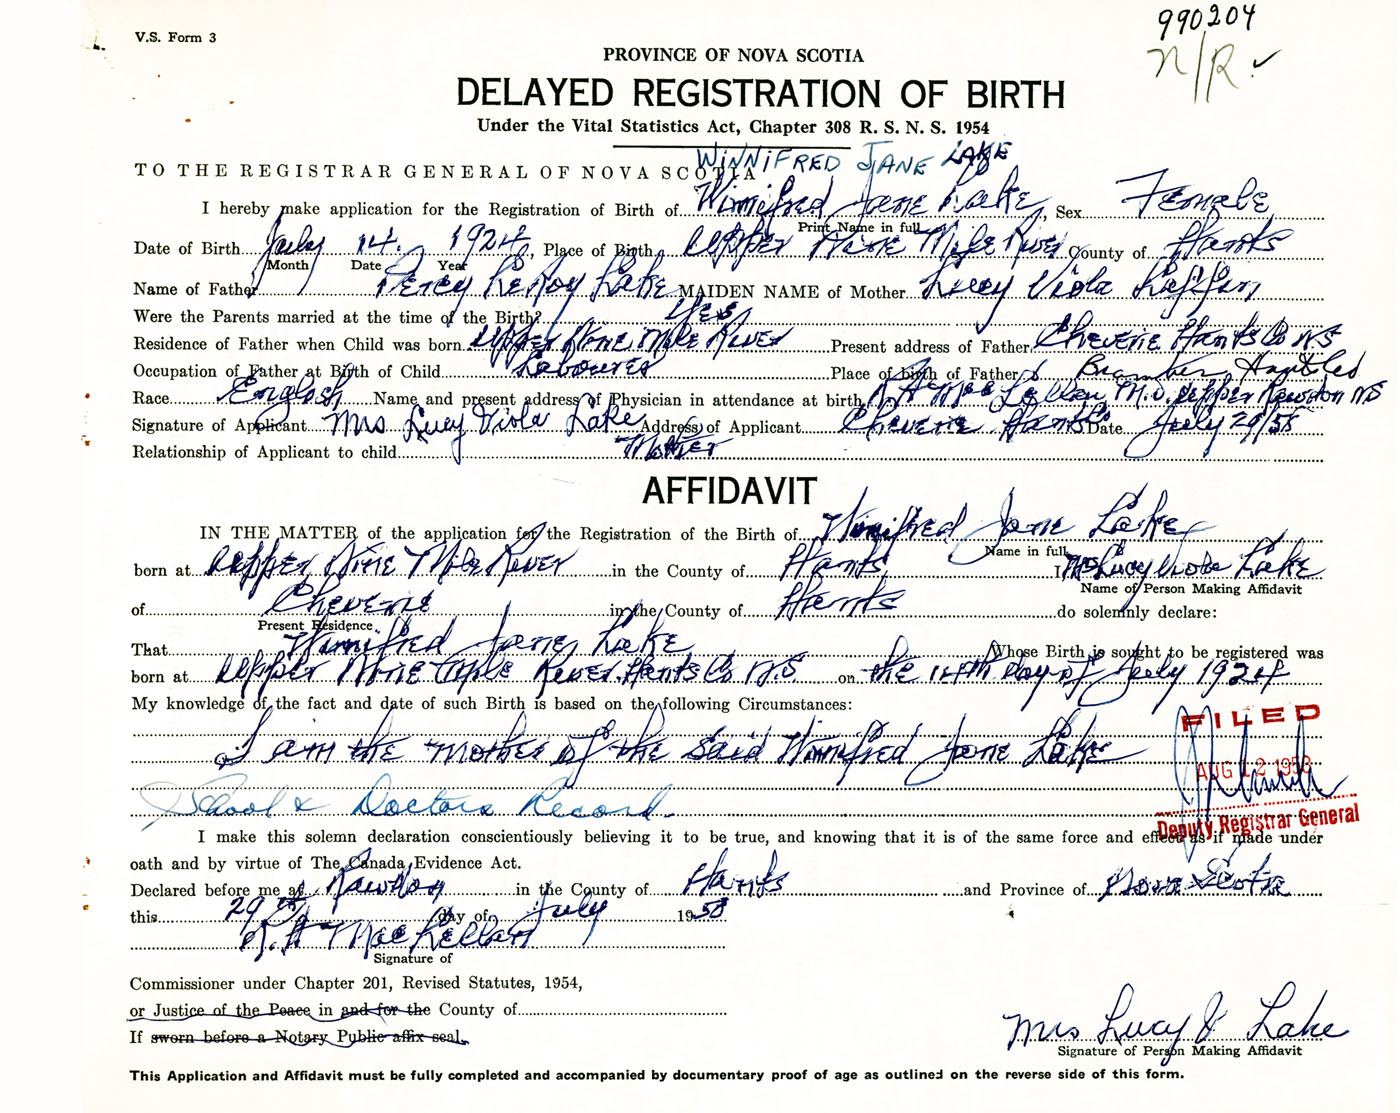 990204
V.S. Form 3
N/R. ✓
PROVINCE OF NOVA SCOTIA
DELAYED REGISTRATION OF BIRTH
Under the Vital Statistics Act, Chapter 308 R. S. N. S. 1954
WINNIFRED JANE LAKE
TO THE REGISTRAR GENERAL OF NOVA SCOTIA
I hereby make application for the Registration of Birth of Winnifred Jane Lake, Sex Female
Print Name in full
Date of Birth July 14. 1924, Place of Birth Upper Nine Mile River County of Hants
Month Date Year
Name of Father Percy LeRoy Lake MAIDEN NAME of Mother Lucy Viola Laffin
Were the Parents married at the time of the Birth? Yes
Residence of Father when Child was born Upper Nine Mile River Present address of Father Cheverie Hants Co NS
Occupation of Father at Birth of Child Labourer Place of birth of Father Bramber Hants Co
Race English Name and present address of Physician in attendance at birth R H MacLellan M.D. Upper Rawdon NS
Signature of Applicant Mrs Lucy Viola Lake Address of Applicant Cheverie Hants Co Date July 29/58
Relationship of Applicant to child Mother
AFFIDAVIT
IN THE MATTER of the application for the Registration of the Birth of Winnifred Jane Lake
Name in full
born at Upper Nine Mile River in the County of Hants I Mrs Lucy Viola Lake
Name of Person Making Affidavit
of Cheverie in the County of Hants do solemnly declare:
Present Residence
That Winnifred Jane Lake Whose Birth is sought to be registered was
born at Upper Nine Mile River Hants Co N.S on the 14th Day of July 1924
My knowledge of the fact and date of such Birth is based on the following Circumstances:
I am the mother of the said Winnifred Jane Lake
School & Doctors Record.
FILED
AUG 12 1958
Deputy Registrar General
I make this solemn declaration conscientiously believing it to be true, and knowing that it is of the same force and effect as if made under
oath and by virtue of The Canada Evidence Act.
Declared before me at Rawdon in the County of Hants and Province of Nova Scotia
this 29th day of July 1958
R. H MacLellan
Signature of
Commissioner under Chapter 201, Revised Statutes, 1954,
or Justice of the Peace in and for the County of
If sworn before a Notary Public affix seal.
Mrs Lucy V Lake
Signature of Person Making Affidavit
This Application and Affidavit must be fully completed and accompanied by documentary proof of age as outlined on the reverse side of this form.